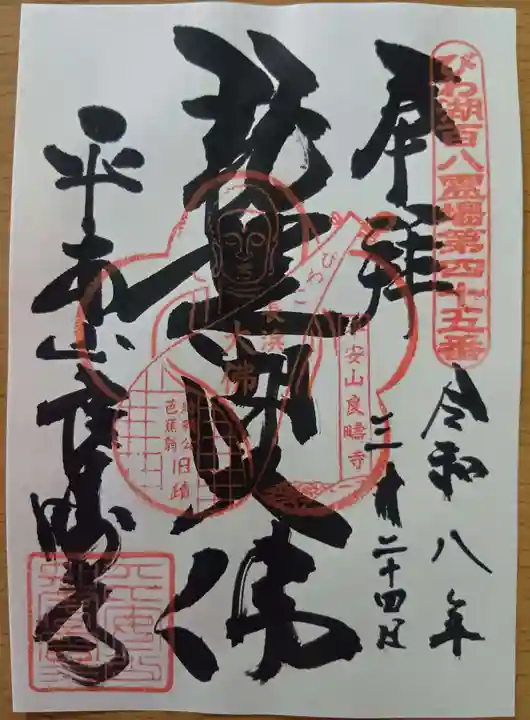 びわ湖百八霊場第四十五番
奉拝
令和八年
三月二十四日
琵琶湖大佛
平安山良疇寺
びわこ
長浜
大佛
安山良疇寺
芭蕉翁
旧蹟